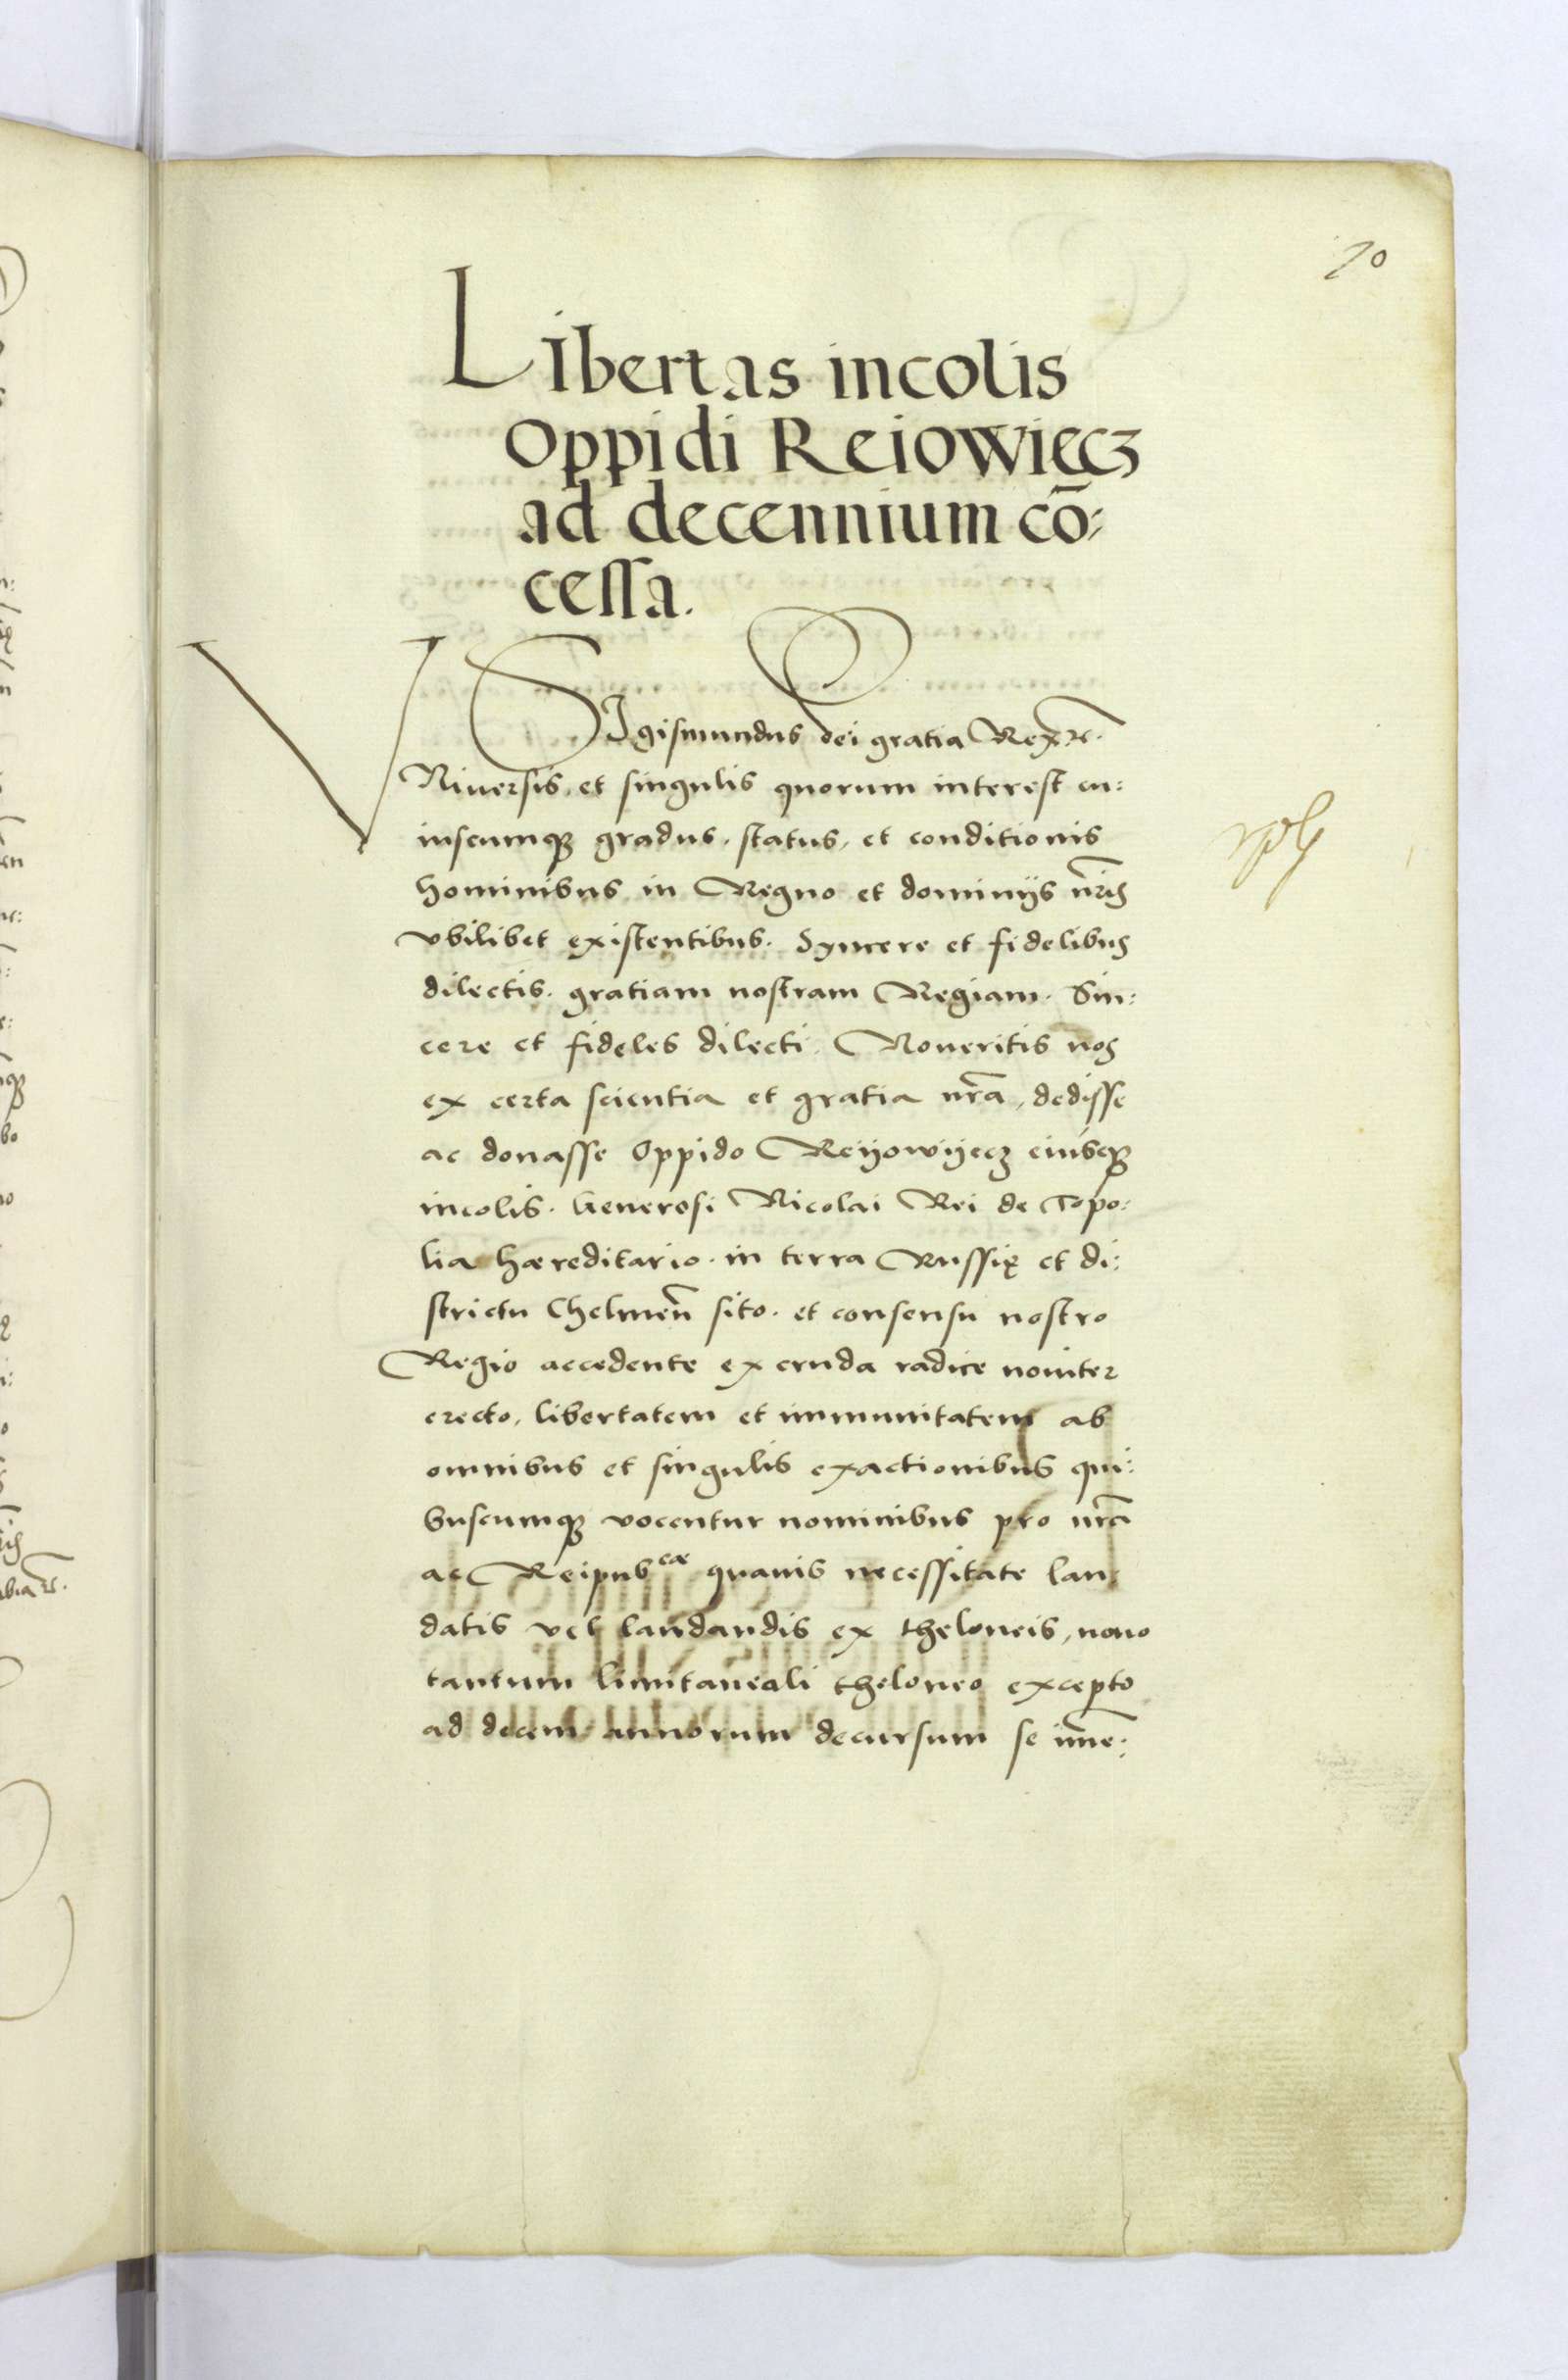 70
Libertas incolis
oppidi Reiowięcz
ad decennium cō:
cessa.
Sigismundus dei gratia Rex etc.
VNiuersis et singulis quorum interest cu:
iuscumq3 gradus, status, et conditionis
hominibus in Regno et dominijs nr̄is
vbilibet existentibus. Syncere et fidelibus
dilectis. gratiam nostram Regiam. Sin:
cere et fideles dilecti. Noueritis nos
ex certa scientia et gratia nr̄a, dedisse
ac donasse Oppido Reijowijecz eiusq3
incolis. Generosi Nicolai Rei de Topo:
lia hæreditario. in terra Russię et di:
strictu Chelmeñ sito. et consensu nostro
Regio accedente ex cruda radice nouiter
erecto, libertatem et immunitatem ab
omnibus et singulis exactionibus qui:
buscumq3 vocentur nominibus pro nr̄a
ac Reipubcæ quauis necessitate lau:
datis vel laudandis ex theloneis, nouo
tantum limitaneali theloneo excepto
ad decem annorum decursum se im̄e: